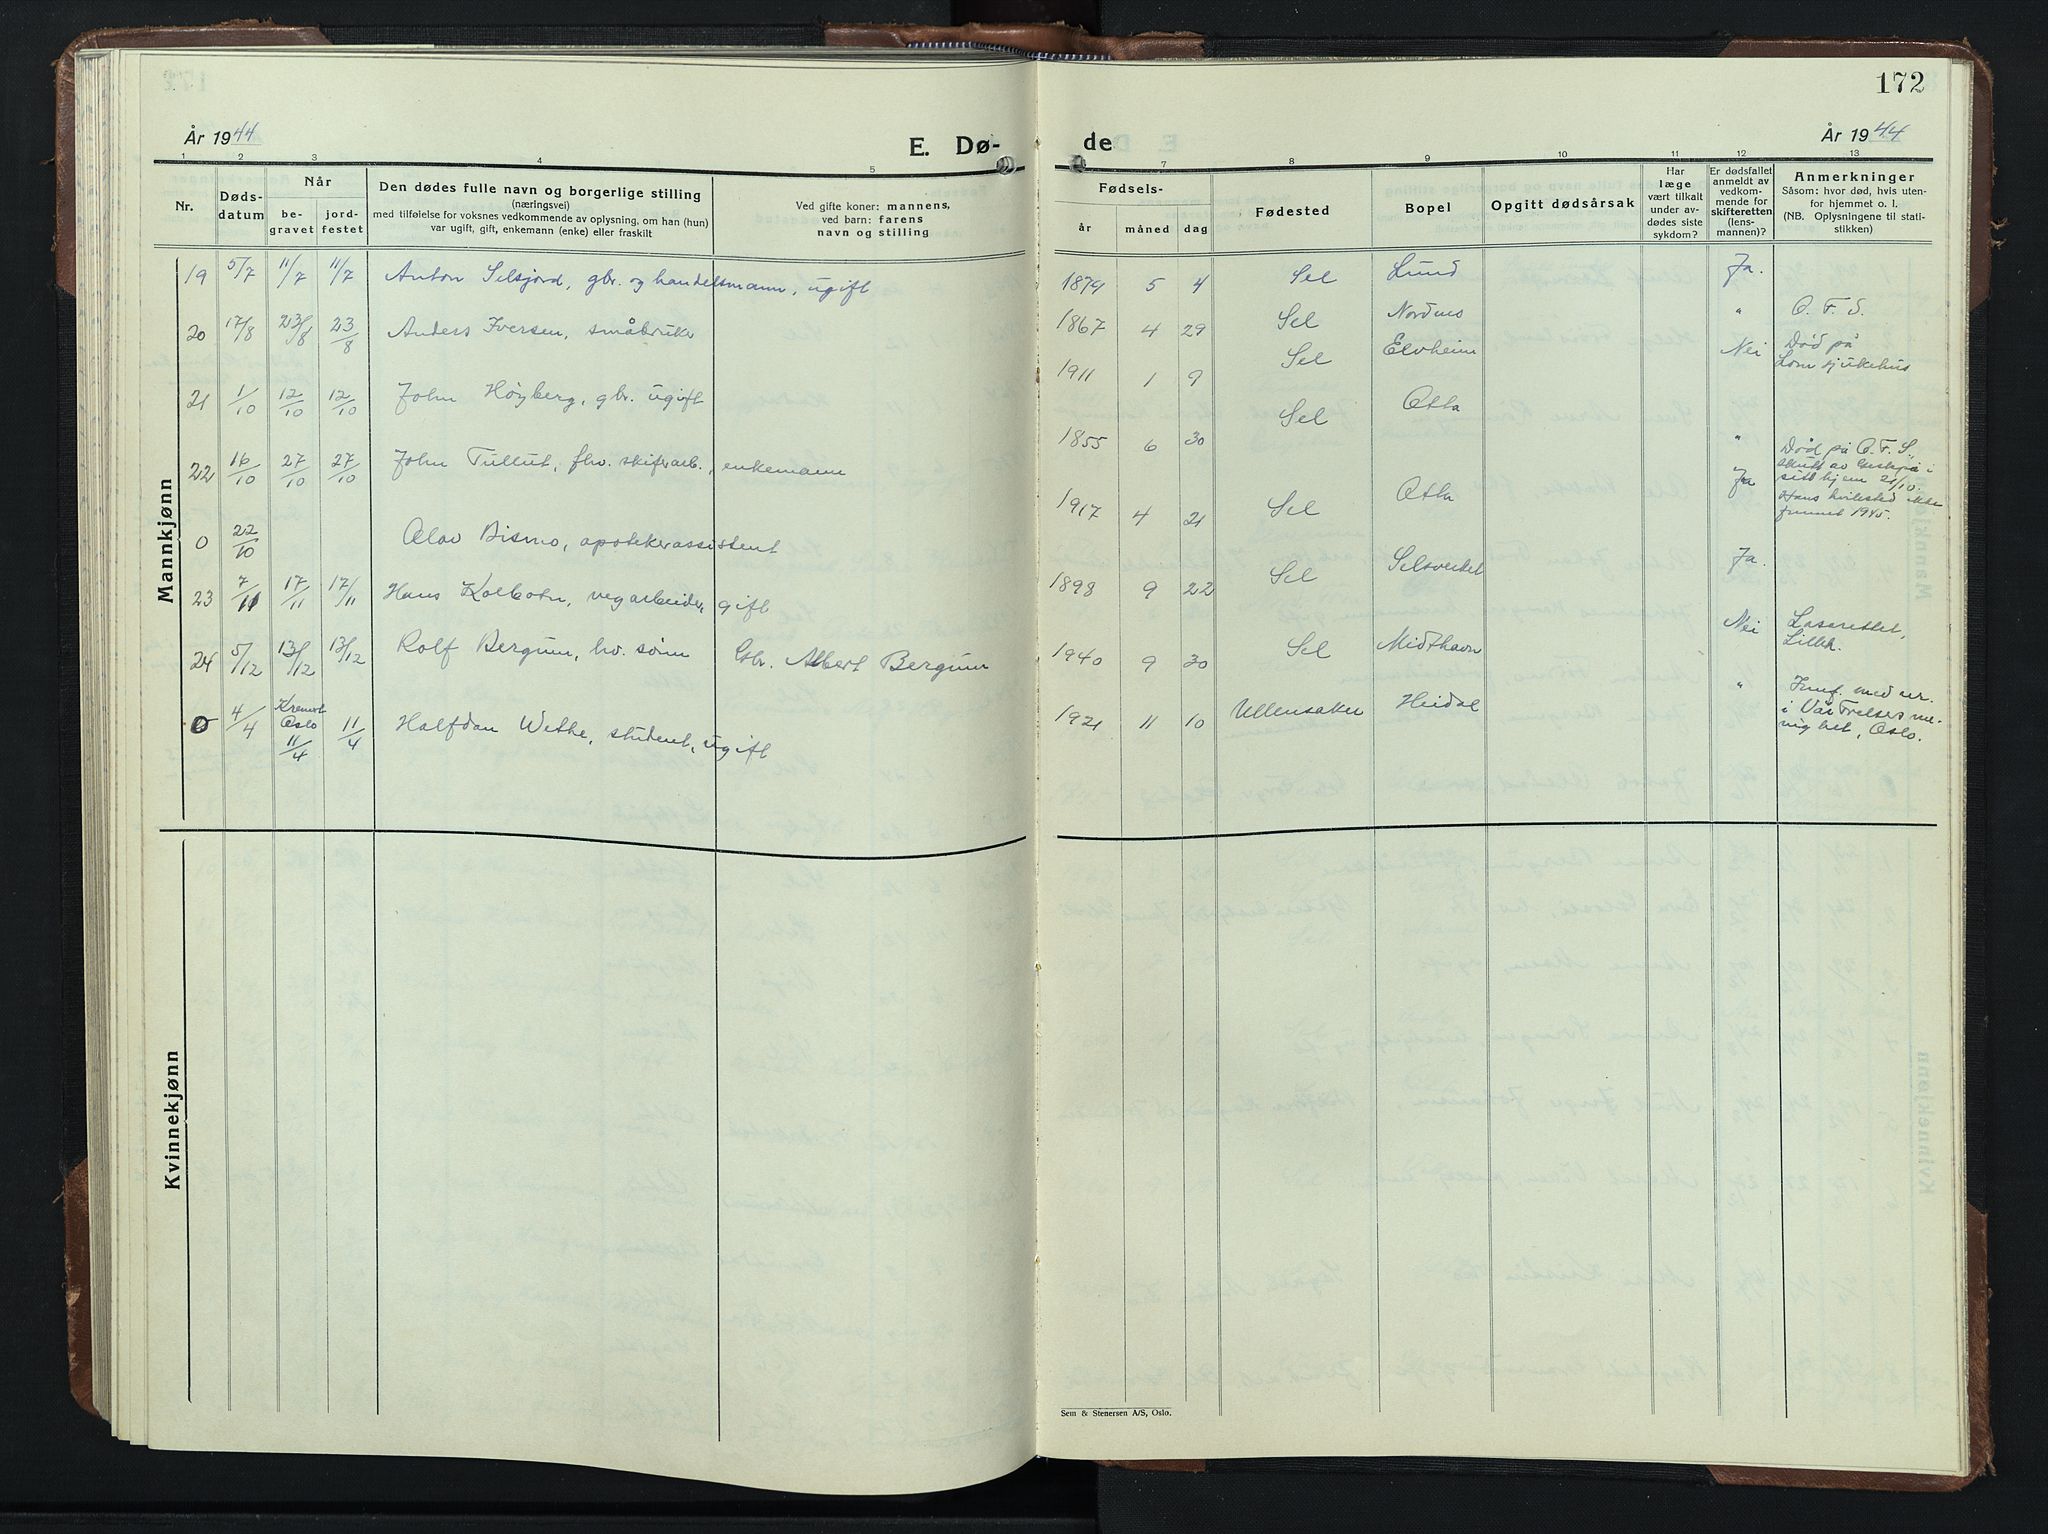 172
År 1944
E. Dø-
de
År 1944
1 2 3 4 5 7 8 9 10 11 12 13
Nr.
Dødsdatum
Når
begravet
jordfestet
Den dødes fulle navn og borgerlige stilling
(næringsvei)
med tilføielse for voksnes vedkommende av oplysning, om han (hun)
var ugift, gift, enkemann (enke) eller fraskilt
Ved gifte koner: mannens,
ved barn: farens
navn og stilling
Fødsels-
år måned dag
Fødested
Bopel
Opgitt dødsårsak
Har læge vært tilkalt under avdødes siste sykdom?
Er dødsfallet anmeldt av vedkommende for skifteretten (lensmannen)?
Anmerkninger
Såsom: hvor død, hvis utenfor hjemmet o. l.
(NB. Oplysningene til statistikken)
Mannkjønn
19 5/7 11/7 11/7 Anton Selsjord, gbr. og handelsmann, ugift 1879 5 4 Sel Lund Ja.
20 17/8 23/8 23/8 Anders Iversen, småbruker 1867 4 29 Sel Nordmo " O. F. S.
21 1/10 12/10 12/10 John Høyberg, gbr. ugift 1911 1 9 Sel Elvheim Nei Død på Lom sjukehus
22 16/10 27/10 27/10 John Tullut, fhv. skiferarb., enkemann 1855 6 30 Sel Otta " Død på O. F. S.,
0 22/10 Olav Bismo, apotekerassistent 1917 4 21 Sel Otta Ja skutt av Gestapo i sitt hjem 21/10. Hans hvilested ikke funnet 1945.
23 7/11 17/11 17/11 Hans Kolbotn, vegarbeider, gift 1898 9 22 Sel Selsverket Ja.
24 5/12 13/12 13/12 Rolf Bergum, hv. sønn Gbr. Albert Bergum 1940 9 30 Sel Midthavn Nei Lasarettet, Lillh.
0 4/4 Kremert Oslo 11/4 11/4 Halfdan Wethe, student, ugift 1921 11 10 Ullensaker Heidal " Innf. med nr. i Vår Frelsers menighet, Oslo.
Kvinnekjønn
Sem & Stenersen A/S, Oslo.